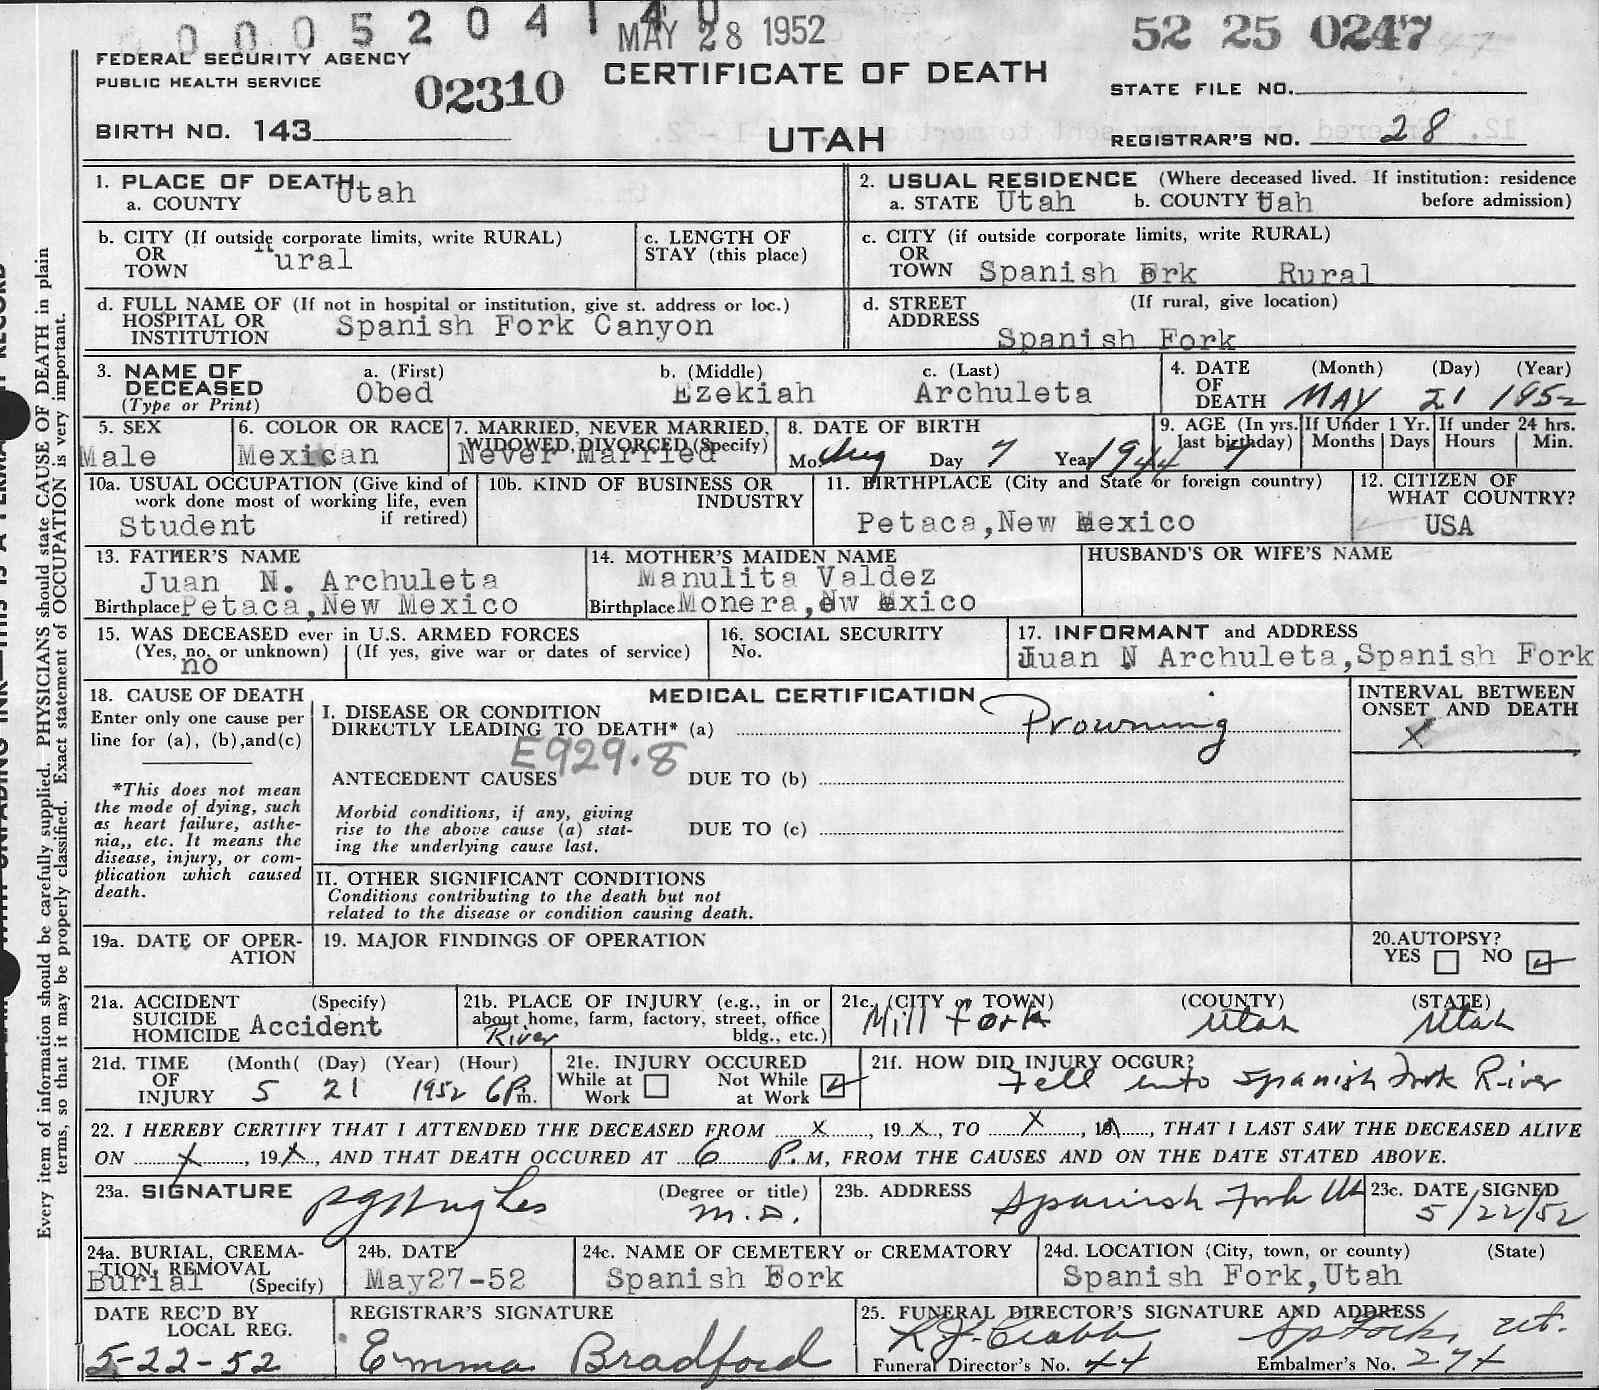 0 0 0 5 2 0 4 1 4 0
MAY 28 1952
52 25 0247
FEDERAL SECURITY AGENCY
PUBLIC HEALTH SERVICE
02310
CERTIFICATE OF DEATH
STATE FILE NO.
BIRTH NO. 143
UTAH
REGISTRAR'S NO. 28
1. PLACE OF DEATH
a. COUNTY Utah
2. USUAL RESIDENCE (Where deceased lived. If institution: residence before admission)
a. STATE Utah b. COUNTY Uah
b. CITY (If outside corporate limits, write RURAL)
OR
TOWN Rural
c. LENGTH OF
STAY (this place)
c. CITY (if outside corporate limits, write RURAL)
OR
TOWN Spanish Frk Rural
d. FULL NAME OF (If not in hospital or institution, give st. address or loc.)
HOSPITAL OR
INSTITUTION Spanish Fork Canyon
d. STREET (If rural, give location)
ADDRESS
Spanish Fork
3. NAME OF
DECEASED
(Type or Print)
a. (First) b. (Middle) c. (Last)
Obed Ezekiah Archuleta
4. DATE (Month) (Day) (Year)
OF
DEATH MAY 21 1952
5. SEX
Male
6. COLOR OR RACE
Mexican
7. MARRIED, NEVER MARRIED,
WIDOWED, DIVORCED (Specify)
Never Married
8. DATE OF BIRTH
Mo. Aug Day 7 Year 1944
9. AGE (In yrs. last birthday) 7
If Under 1 Yr. Months Days
If under 24 hrs. Hours Min.
10a. USUAL OCCUPATION (Give kind of
work done most of working life, even
if retired)
Student
10b. KIND OF BUSINESS OR
INDUSTRY
11. BIRTHPLACE (City and State or foreign country)
Petaca, New Mexico
12. CITIZEN OF
WHAT COUNTRY?
USA
13. FATHER'S NAME
Juan N. Archuleta
Birthplace Petaca, New Mexico
14. MOTHER'S MAIDEN NAME
Manulita Valdez
Birthplace Monera, ew exico
HUSBAND'S OR WIFE'S NAME
15. WAS DECEASED ever in U.S. ARMED FORCES
(Yes, no, or unknown) (If yes, give war or dates of service)
no
16. SOCIAL SECURITY
No.
17. INFORMANT and ADDRESS
Juan N Archuleta, Spanish Fork
18. CAUSE OF DEATH
Enter only one cause per
line for (a), (b), and (c)
*This does not mean
the mode of dying, such
as heart failure, asthe-
nia,, etc. It means the
disease, injury, or com-
plication which caused
death.
MEDICAL CERTIFICATION
I. DISEASE OR CONDITION
DIRECTLY LEADING TO DEATH* (a) Drowning
E929.8
ANTECEDENT CAUSES DUE TO (b)
Morbid conditions, if any, giving
rise to the above cause (a) stat-
ing the underlying cause last.
DUE TO (c)
INTERVAL BETWEEN
ONSET AND DEATH
X
II. OTHER SIGNIFICANT CONDITIONS
Conditions contributing to the death but not
related to the disease or condition causing death.
19a. DATE OF OPER-
ATION
19. MAJOR FINDINGS OF OPERATION
20. AUTOPSY?
YES NO
21a. ACCIDENT (Specify)
SUICIDE
HOMICIDE Accident
21b. PLACE OF INJURY (e.g., in or
about home, farm, factory, street, office
bldg., etc.)
River
21c. (CITY or TOWN) (COUNTY) (STATE)
Mill Fork Utah Utah
21d. TIME (Month( (Day) (Year) (Hour)
OF
INJURY 5 21 1952 6 P m.
21e. INJURY OCCURED
While at Work Not While at Work
21f. HOW DID INJURY OCCUR?
Fell into Spanish Fork River
22. I HEREBY CERTIFY THAT I ATTENDED THE DECEASED FROM X, 19 X, TO X, 19X, THAT I LAST SAW THE DECEASED ALIVE
ON X, 19X, AND THAT DEATH OCCURED AT 6 P.M, FROM THE CAUSES AND ON THE DATE STATED ABOVE.
23a. SIGNATURE (Degree or title)
Hughes M.D.
23b. ADDRESS
Spanish Fork Ut
23c. DATE SIGNED
5/22/52
24a. BURIAL, CREMA-
TION, REMOVAL
(Specify)
Burial
24b. DATE
May 27-52
24c. NAME OF CEMETERY or CREMATORY
Spanish Fork
24d. LOCATION (City, town, or county) (State)
Spanish Fork, Utah
DATE REC'D BY
LOCAL REG.
5-22-52
REGISTRAR'S SIGNATURE
Emma Bradford
25. FUNERAL DIRECTOR'S SIGNATURE AND ADDRESS
Sp Fork, Ut.
Funeral Director's No. 44 Embalmer's No. 274
Every item of information should be carefully supplied. PHYSICIANS should state CAUSE OF DEATH in plain
terms, so that it may be properly classified. Exact statement of OCCUPATION is very important.